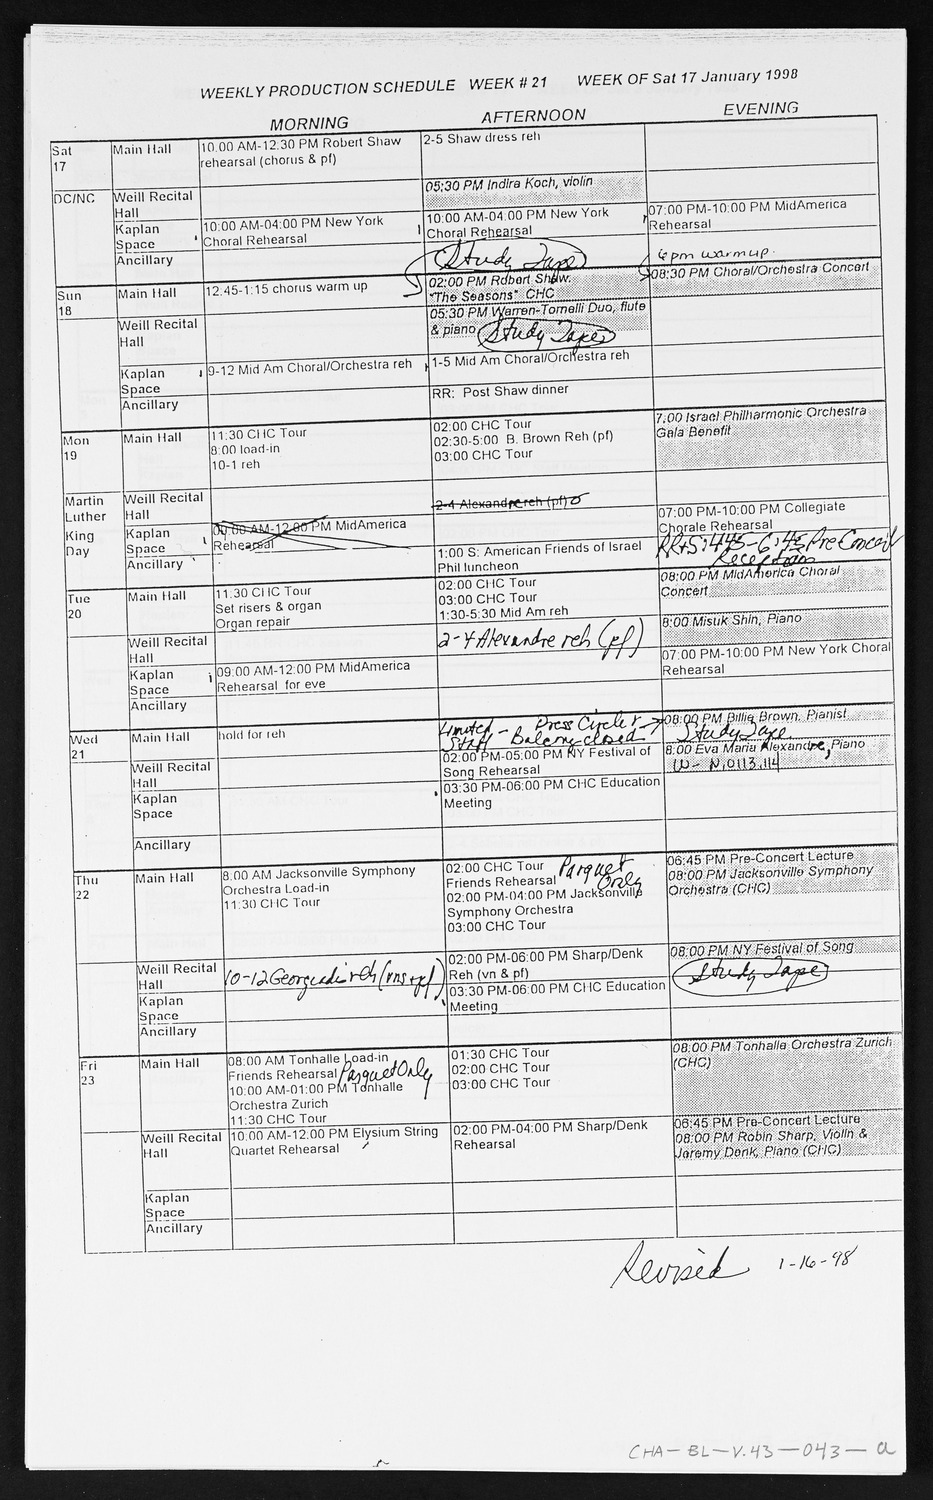 WEEKLY PRODUCTION SCHEDULE WEEK # 21 WEEK OF Sat 17 January 1998
MORNING AFTERNOON EVENING
Sat
17
Main Hall
10:00 AM-12:30 PM Robert Shaw
rehearsal (chorus & pf)
2-5 Shaw dress reh
DC/NC
Weill Recital
Hall
05:30 PM Indira Koch, violin
Kaplan
Space
10:00 AM-04:00 PM New York
Choral Rehearsal
10:00 AM-04:00 PM New York
Choral Rehearsal
07:00 PM-10:00 PM MidAmerica
Rehearsal
Ancillary
Study Tape
6 pm warmup.
Sun
18
Main Hall
12:45-1:15 chorus warm up
02:00 PM Robert Shaw:
"The Seasons" CHC
08:30 PM Choral/Orchestra Concert
Weill Recital
Hall
05:30 PM Warren-Tomelli Duo, flute
& piano
Study Tape
Kaplan
Space
9-12 Mid Am Choral/Orchestra reh
1-5 Mid Am Choral/Orchestra reh
Ancillary
RR: Post Shaw dinner
Mon
19
Main Hall
11:30 CHC Tour
8:00 load-in
10-1 reh
02:00 CHC Tour
02:30-5:00 B. Brown Reh (pf)
03:00 CHC Tour
7:00 Israel Philharmonic Orchestra
Gala Benefit
Martin
Luther
King
Day
Weill Recital
Hall
2-4 Alexandre reh (pf)
Kaplan
Space
09:00 AM-12:00 PM MidAmerica
Rehearsal
07:00 PM-10:00 PM Collegiate
Chorale Rehearsal
Ancillary
1:00 S: American Friends of Israel
Phil luncheon
RR+S: 4:45-6:45 Pre Concert
Reception
Tue
20
Main Hall
11:30 CHC Tour
Set risers & organ
Organ repair
02:00 CHC Tour
03:00 CHC Tour
1:30-5:30 Mid Am reh
08:00 PM MidAmerica Choral
Concert
Weill Recital
Hall
2-4 Alexandre reh (pf)
8:00 Misuk Shin, Piano
Kaplan
Space
09:00 AM-12:00 PM MidAmerica
Rehearsal for eve
07:00 PM-10:00 PM New York Choral
Rehearsal
Ancillary
Wed
21
Main Hall
hold for reh
Limited - Press Circle +
Staff - Balcony closed -
08:00 PM Billie Brown, Pianist
Study Tape
Weill Recital
Hall
02:00 PM-05:00 PM NY Festival of
Song Rehearsal
8:00 Eva Maria Alexandre, Piano
W - N, 0113, 114
Kaplan
Space
03:30 PM-06:00 PM CHC Education
Meeting
Ancillary
Thu
22
Main Hall
8:00 AM Jacksonville Symphony
Orchestra Load-in
11:30 CHC Tour
02:00 CHC Tour
Friends Rehearsal Parquet Only
02:00 PM-04:00 PM Jacksonville
Symphony Orchestra
03:00 CHC Tour
06:45 PM Pre-Concert Lecture
08:00 PM Jacksonville Symphony
Orchestra (CHC)
Weill Recital
Hall
10-12 Georgiadis reh (vns+pf)
02:00 PM-06:00 PM Sharp/Denk
Reh (vn & pf)
08:00 PM NY Festival of Song
Study Tape
Kaplan
Space
03:30 PM-06:00 PM CHC Education
Meeting
Ancillary
Fri
23
Main Hall
08:00 AM Tonhalle Load-in
Friends Rehearsal Parquet Only
10:00 AM-01:00 PM Tonhalle
Orchestra Zurich
11:30 CHC Tour
01:30 CHC Tour
02:00 CHC Tour
03:00 CHC Tour
08:00 PM Tonhalle Orchestra Zurich
(CHC)
Weill Recital
Hall
10:00 AM-12:00 PM Elysium String
Quartet Rehearsal
02:00 PM-04:00 PM Sharp/Denk
Rehearsal
06:45 PM Pre-Concert Lecture
08:00 PM Robin Sharp, Violin &
Jeremy Denk, Piano (CHC)
Kaplan
Space
Ancillary
Revised 1-16-98
CHA-BL-V.43-043-a